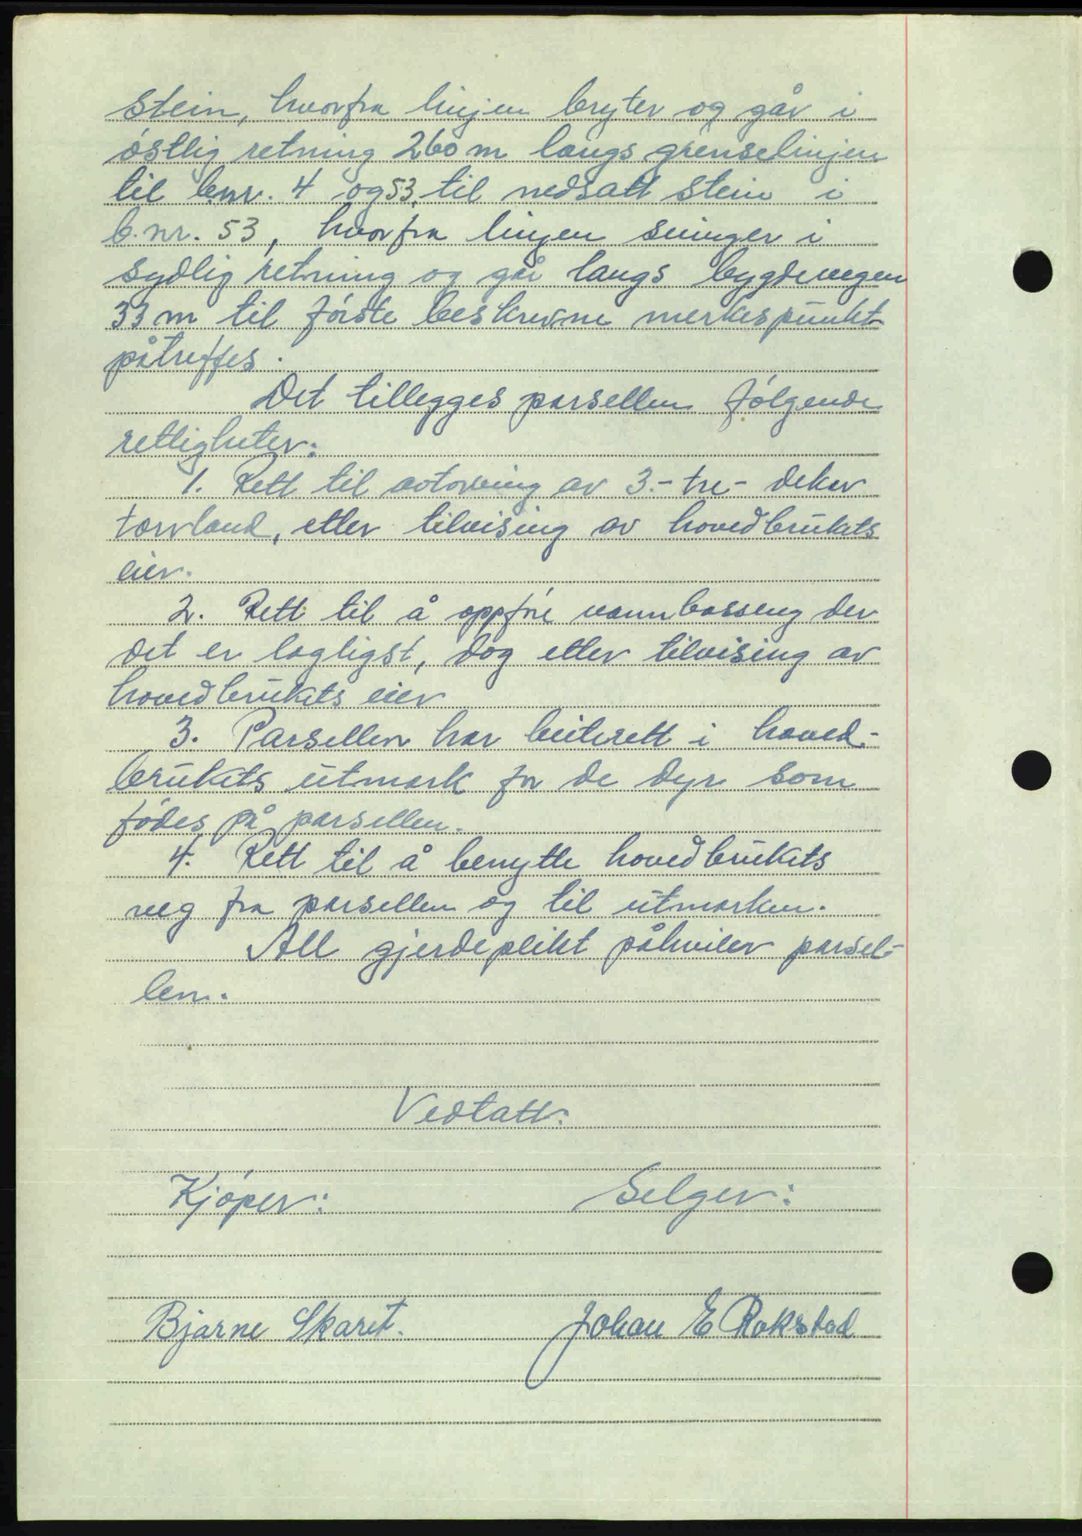 stein, hvorfra linjen bryter og går i
östlig retning 260 m langs grenselinjen
til bnr. 4 og 53, til nedsatt stein i
b.nr. 53, hvorfra linjen svinger i
sydlig retning og går langs bygdevegen
33 m til förste beskrevne merkespunkt
påtreffes.
Det tillegges parsellen fölgende
rettigheter:
1. Rett til avtorving av 3.- tre - dekar
torvland, etter tilvising av hovedbrukets
eier.
2. Rett til å oppföre vannbasseng der
det er lagligst, dog etter tilvising av
hovedbrukets eier
3. Parsellen har beiterett i hoved-
brukets utmark for de dyr som
födes på parsellen.
4. Rett til å benytte hovedbrukets
veg fra parsellen og til utmarken.
All gjerdeplikt påhviler parsel-
len.
Vedtatt:
Kjöper: Selger:
Bjarne Skaret. Johan E Rokstad